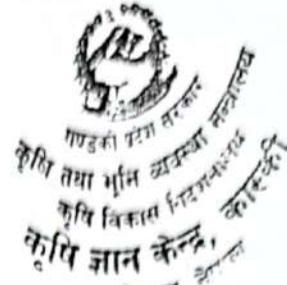 गण्डकी प्रदेश सरकार
कृषि तथा भूमि व्यवस्था मन्त्रालय
कृषि विकास निर्देशनालय
कृषि ज्ञान केन्द्र, कास्की